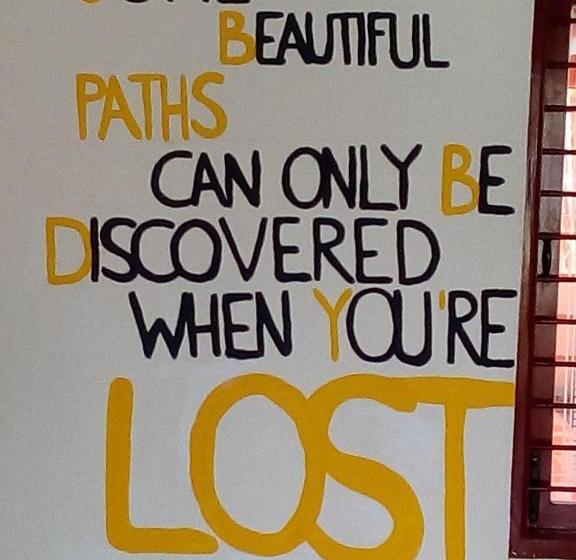 BEAUTIFUL
PATHS
CAN ONLY BE
DISCOVERED
WHEN YOU'RE
LOST